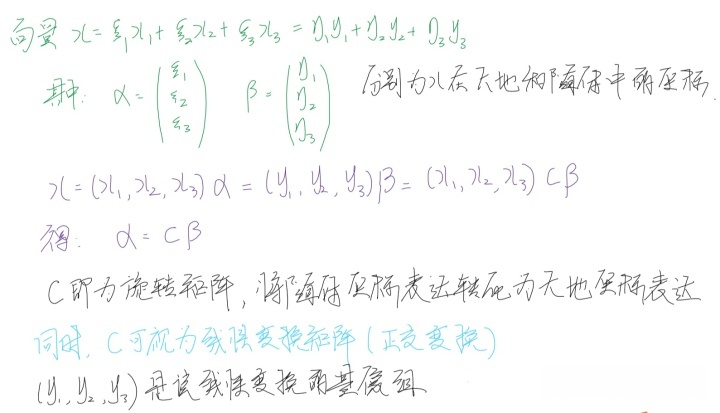 向量 x = ξ₁x₁ + ξ₂x₂ + ξ₃x₃ = η₁y₁ + η₂y₂ + η₃y₃
其中: α = (ξ₁ ξ₂ ξ₃) β = (η₁ η₂ η₃) 分别为x在天地和随体中的坐标.
x = (x₁, x₂, x₃) α = (y₁, y₂, y₃) β = (x₁, x₂, x₃) C β
得: α = C β
C 即为旋转矩阵, 将随体坐标表达转化为天地坐标表达
同时, C 可视为线性变换矩阵 (正交变换)
(y₁, y₂, y₃) 是该线性变换的基像组